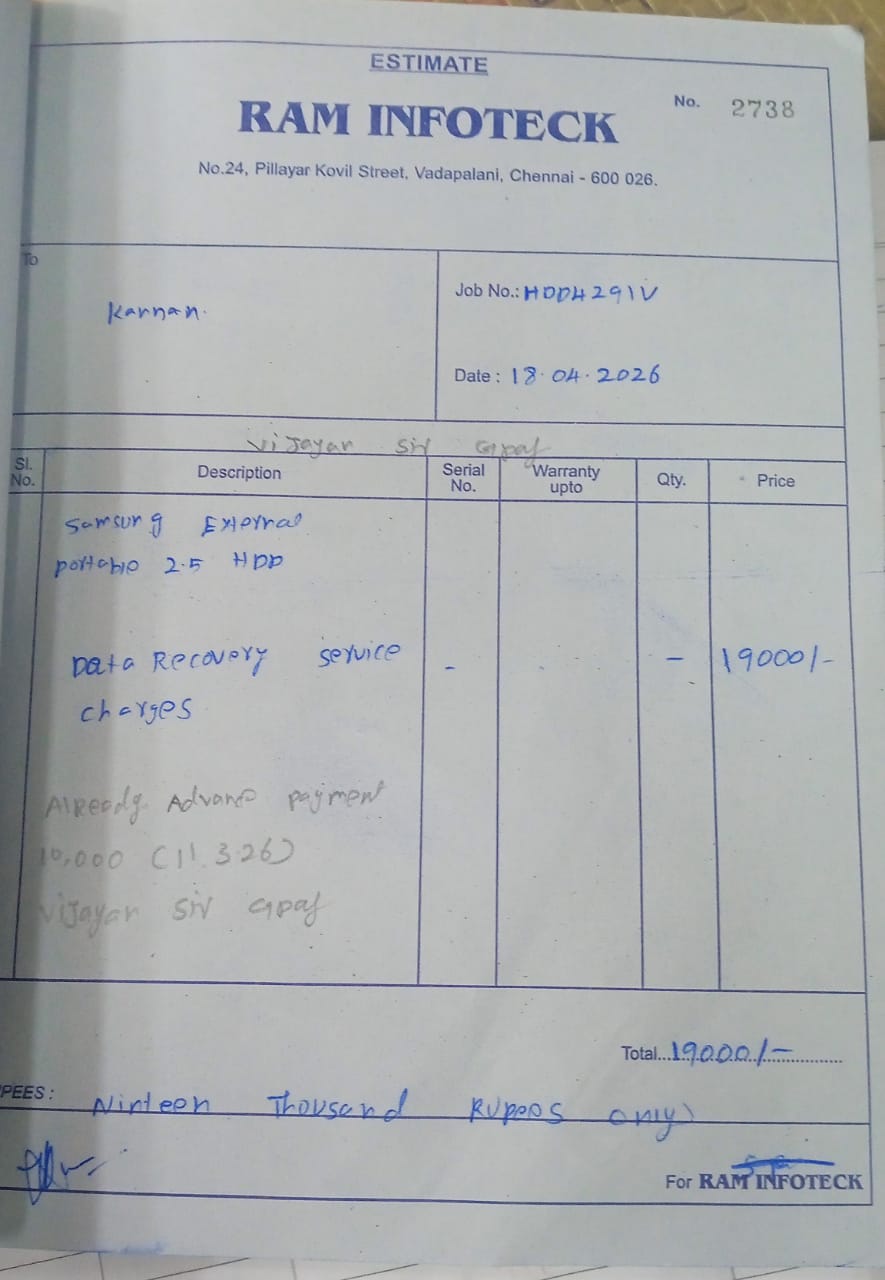 ESTIMATE
No. 2738
RAM INFOTECK
No.24, Pillayar Kovil Street, Vadapalani, Chennai - 600 026.
To
Karnan.
Job No.: HDD4291V
Date : 18.04.2026
Vijayan Sir Gpay
Sl. No. Description Serial No. Warranty upto Qty. Price
Samsung External
portable 2.5 HDD
Data Recovery service - - 19000/-
charges
Already Advance payment
10,000 (11.3.26)
Vijayan Sir Gpay
Total...19000/-
PEES : Ninteen Thousand Rupees only)
For RAM INFOTECK